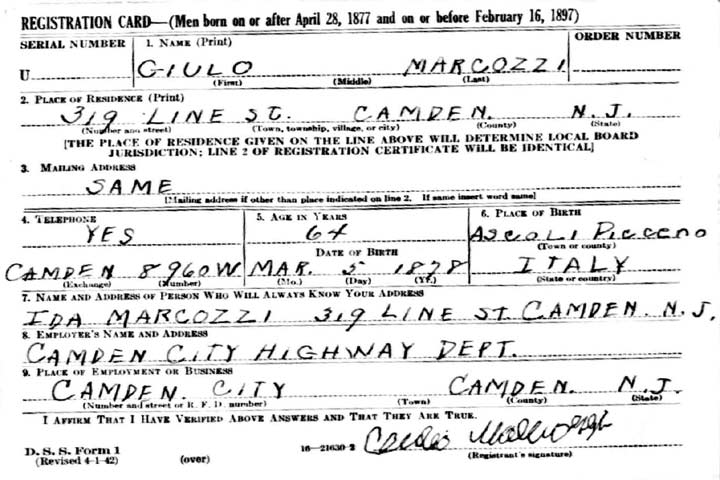 REGISTRATION CARD—(Men born on or after April 28, 1877 and on or before February 16, 1897)
SERIAL NUMBER 1. NAME (Print) ORDER NUMBER
U GIULO MARCOZZI
(First) (Middle) (Last)
2. PLACE OF RESIDENCE (Print)
319 LINE ST. CAMDEN. N. J.
(Number and street) (Town, township, village, or city) (County) (State)
[THE PLACE OF RESIDENCE GIVEN ON THE LINE ABOVE WILL DETERMINE LOCAL BOARD
JURISDICTION; LINE 2 OF REGISTRATION CERTIFICATE WILL BE IDENTICAL]
3. MAILING ADDRESS
SAME
[Mailing address if other than place indicated on line 2. If same insert word same]
4. TELEPHONE 5. AGE IN YEARS 6. PLACE OF BIRTH
YES 64 ASCOLI PICCENO
DATE OF BIRTH (Town or county)
CAMDEN 8960W MAR. 5 1878 ITALY
(Exchange) (Number) (Mo.) (Day) (Yr.) (State or country)
7. NAME AND ADDRESS OF PERSON WHO WILL ALWAYS KNOW YOUR ADDRESS
IDA MARCOZZI 319 LINE ST. CAMDEN. N. J.
8. EMPLOYER'S NAME AND ADDRESS
CAMDEN CITY HIGHWAY DEPT.
9. PLACE OF EMPLOYMENT OR BUSINESS
CAMDEN. CITY CAMDEN. N. J.
(Number and street or R. F. D. number) (Town) (County) (State)
I AFFIRM THAT I HAVE VERIFIED ABOVE ANSWERS AND THAT THEY ARE TRUE.
D. S. S. Form 1 16—21630-2
(Revised 4-1-42) (over) (Registrant's signature)